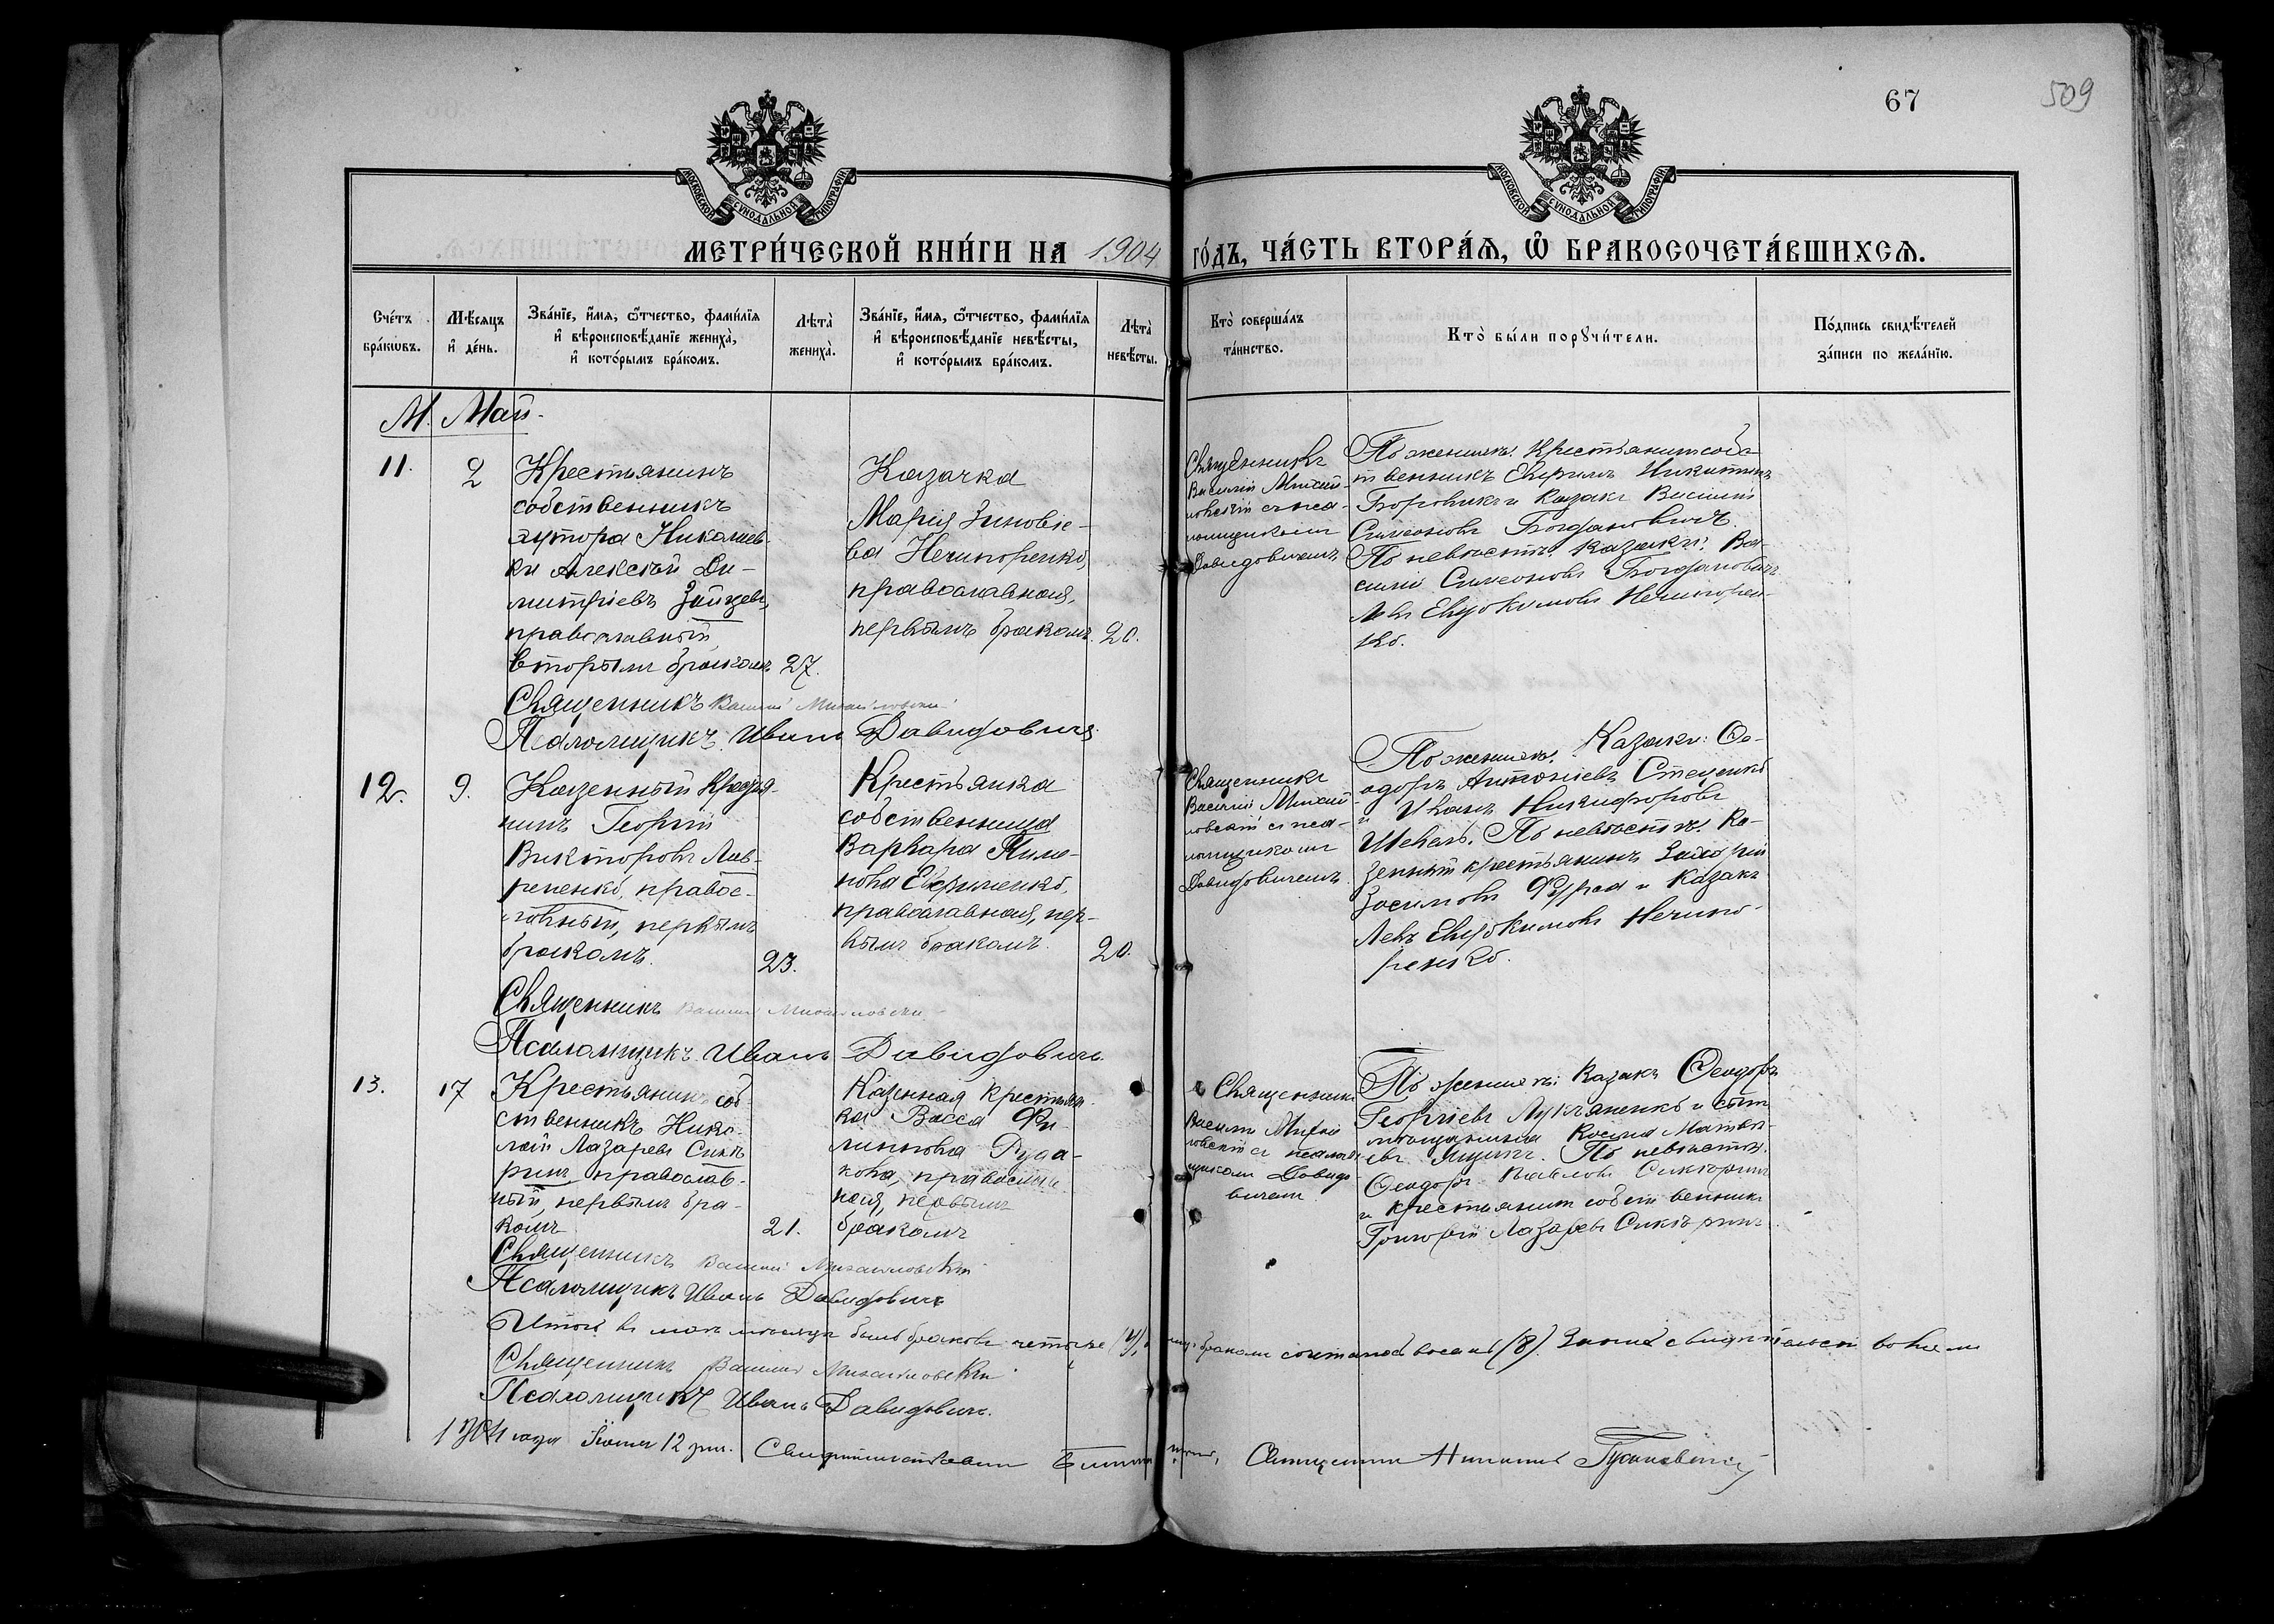 67
509
МОСКОВСКОЙ СѴНОДАЛЬНОЙ ТИПОГРАФІИ
МОСКОВСКОЙ СѴНОДАЛЬНОЙ ТИПОГРАФІИ
МЕТРИ́ЧЕСКОЙ КНИ́ГИ НА 1904 ГО́ДЪ, ЧА́СТЬ ВТОРА́Ѧ, Ѽ БРАКОСОЧЕТА́ВШИХСѦ.
Сче́тъ бра́кѡвъ.
Мѣ́сяцъ и҆ де́нь.
Зва́нїе, и҆́мя, ѻ҆́тчество, фами́лїя
и҆ вѣроисповѣ́данїе жениха̀,
и҆ кото́рымъ бра́комъ.
Лѣта̀ жениха̀.
Зва́нїе, и҆́мя, ѻ҆́тчество, фами́лїя
и҆ вѣроисповѣ́данїе невѣ́сты,
и҆ кото́рымъ бра́комъ.
Лѣта̀ невѣ́сты.
Кто̀ соверша́лъ та́инство.
Кто̀ бы́ли порꙋчи́тели.
По́дпись свидѣ́телей за́писи по жела́нїю.
М. Май.
11.
2
Крестьянинъ
собственникъ
хутора Николаев-
ки Алексѣй Ди-
митріевъ Зайцевъ,
православный,
вторымъ бракомъ
27.
Козачка
Марія Зиновіе-
ва Нечипоренко,
православная,
первымъ бракомъ.
20.
Священникъ
Василій Михай-
ловскій съ пса-
ломщикомъ
Давидовичемъ
По женихѣ: Крестьянинъ соб-
ственникъ Ефремъ Никитинъ
Боровикъ и Казакъ Василій
Симеоновъ Богдановичъ.
По невѣстѣ: Казаки: Ва-
силій Симеоновъ Богдановичъ
Левъ Евдокимовъ Нечипорен-
ко.
Священникъ Василій Михайловскій
Псаломщикъ Иванъ Давидовичъ
12.
9.
Казенный Кресть-
нинъ Георгій
Викторовъ Лав-
риненко, правос-
лавный, первымъ
бракомъ.
23.
Крестьянка
собственница
Варвара Пиме-
нова Ефименко,
православная, пер-
вымъ бракомъ.
20.
Священникъ
Василій Михай-
ловскій съ пса-
ломщикомъ
Давидовичемъ
По женихѣ: Казаки: Ѳе-
одоръ Антоніевъ Стеценко
и Иванъ Никифоровъ
Шевель. По невѣстѣ: Ка-
зенный крестьянинъ
Зосимовъ Фурса и Казакъ
Левъ Евдокимовъ Нечипо-
ренко.
Священникъ Василій Михайловскій
Псаломщикъ Иванъ Давидовичъ
13.
17
Крестьянинъ соб-
ственникъ Нико-
лай Лазаревъ
православ-
ный, первымъ бра-
комъ
21.
Казенная Крестьян-
ка Васса Фи-
липпова
православ-
ная, первымъ
бракомъ
Священникъ
Василій Михай-
ловскій съ псалом-
щикомъ Давидо-
вичемъ
По женихѣ: Казакъ Ѳеодоръ
Георгіевъ Лукьяненко и сынъ
мѣщанина Косьма Матвѣ-
евъ По невѣстѣ:
Ѳеодоръ Павловъ
и крестьянинъ собственникъ
Григорій Лазаревъ
Священникъ Василій Михайловскій
Псаломщикъ Иванъ Давидовичъ
Итого въ маѣ мѣсяцѣ было браковъ четыре (4), бракомъ сочталось восемь (8).
Священникъ Василій Михайловскій
Псаломщикъ Иванъ Давидовичъ.
1904 года Іюня 12 дня. Священникъ